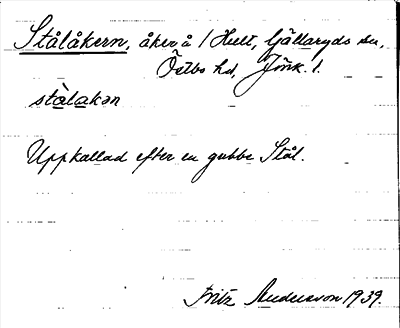 Stålåkern, åker å 1 Hult, Gällaryds sn,
Östbo hd, Jönk. l.
stålakən
Uppkallad efter en gubbe Stål.
Fritz Andersson 1939.